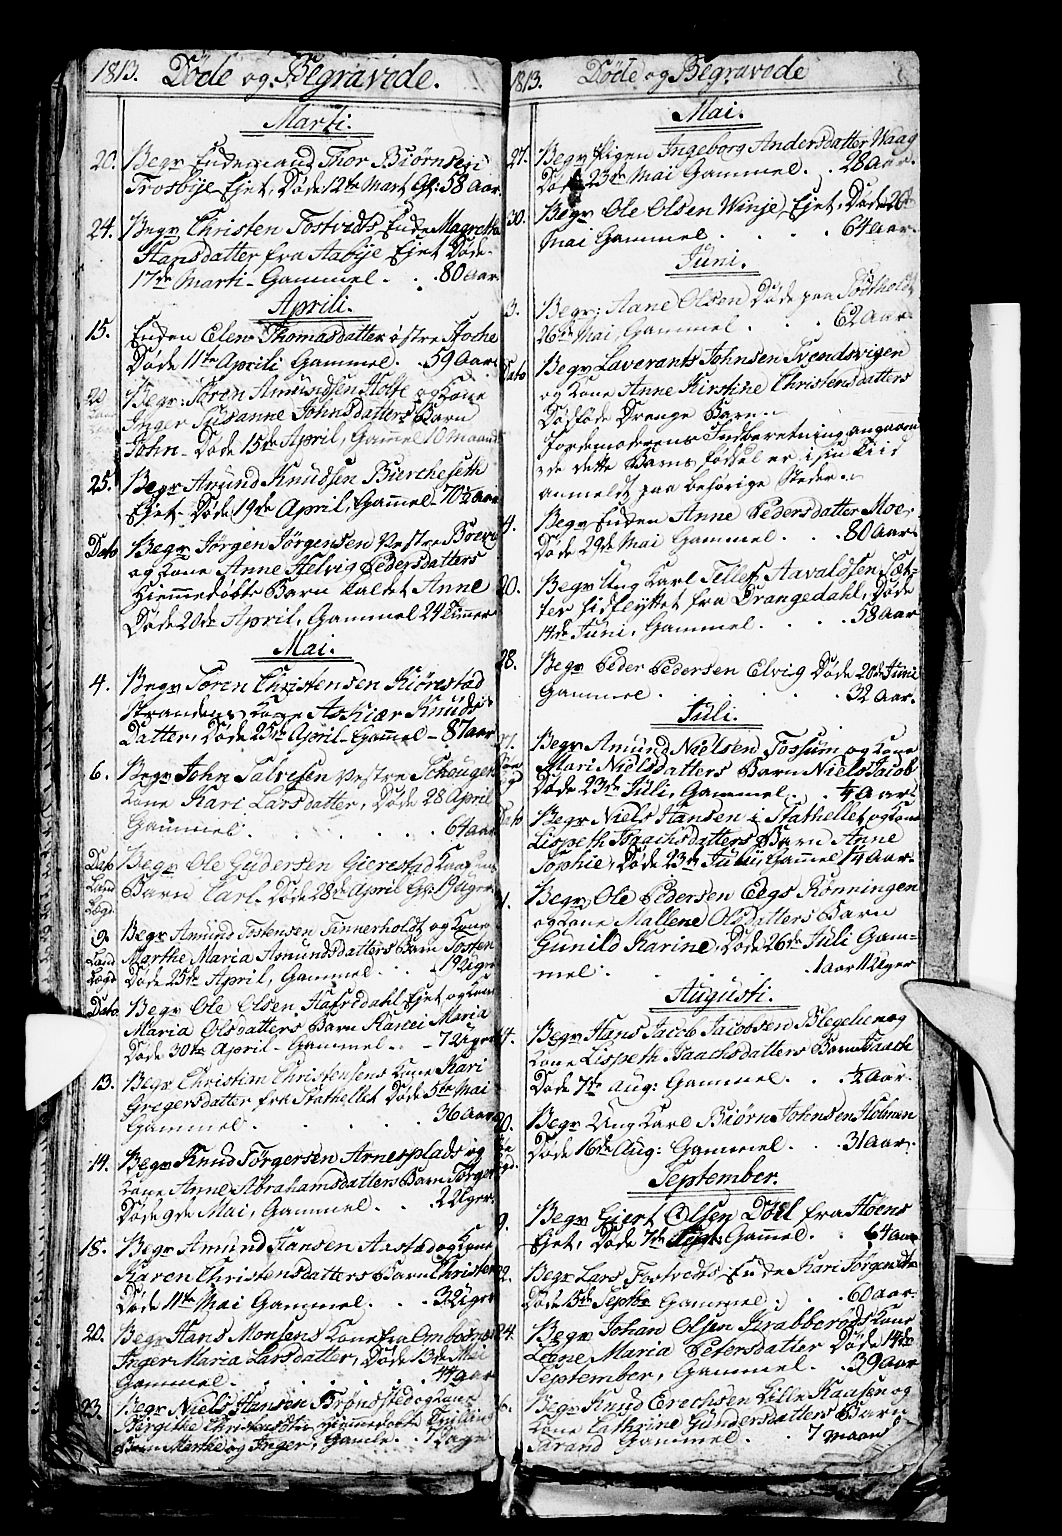 1813. Døde og Begravede.
Marti.
20. Begr Enkemand Thor Biørnsen
Trosbye Ejet, Døde 12te Mart G: 58 aar
24. Begr Christen Tostveds Enke Magrethe
Hansdatter fra Aabye Ejet Døde
17de Marti - Gammel . . 80 aar
Aprili.
15. Enken Elen Thomasdatter østre
Døde 11te Aprili Gammel . 59 aar
Begr: Søren Amundsen og Kone
Inger Susanne Johnsdatters Barn
John - Døde 15de April, Gamel 10 maaned
25. Begr Amund Knudsen
Ejet - Døde 19de April, Gamel 70½ aar
Dato Begr Jørgen Jørgensen Vestre
og Kone Anne Helvig Pedersdatters
Hiemmedøbte Barn kaldet Anne
Døde 20de April, Gammel 24 Timer
Mai.
4. Begr Søren Christensen Kiørestad
Strandens Kone Knuds
Datter, Døde 25de April - Gamel - 87 aar
6. Begr John Salvesen Vestre
Kone Kari Larsdatter, Døde 28 April
Gammel . . . . 64 aar
Dato Begr Ole Gierestad
Land Barn Carl. Døde 28de April 19 Uger
9. Begr Amund Tostensen Finnerholdt og Kone
Land Marthe Maria Amundsdatters Barn Tosten
Døde 25de April, Gammel . . . 19 Uger
Dato Begr Ole Olsen Ejet og Kone
Maria Olsdatters Barn Maria
Døde 30te April - Gammel . . - 7 Uger
13. Begr Christian Christensens Kone Kari
Gregersdatter fra Stathellet Døde 5te Mai
Gammel . . . . 36 aar
14. Begr Knud Jørgensen Arnesplads og
Kone Anne Abrahamsdatters Barn
Døde 9de Mai, Gammel . . 2 Uger.
18. Begr Amund Hansen Aastad og Kone
Karen Christensdatters Barn Christen
Døde 11te Mai Gammel . . . 32 Uger
20. Begr Hans Monsens Kone fra
Inger Maria Larsdatter, Døde 13de Mai
Gammel . . . . . 44 aar
23. Begr Niels Hansen Brønsted og Kone
Birgithe Christensdtr hiemmedøbte Tvilling
Børn Marthe og Inger, Gamle . . 7 Dage
1813. Døde og Begravede
Mai.
27. Begr Pigen Ingeborg Andersdatter Waag
Død 23de Mai Gammel . . 28 aar.
30. Begr Ole Olsen Winje, Ejet, Døde
Mai Gammel . . . . 64 aar.
Juni.
3. Begr: Hane Olsen Døde paa
26de Mai Gammel . . . 62 aar
Dato Begr Laverants Johnsen Trendsvigen
og Kone Anne Kirstine Christensdatters
Dødføde Drenge Barn
Jordemoderens Indberetning angaaen
de dette Barns fødsel er i sin Tiid
anmeldt paa behørige Steder
4. Begr Enken Anne Pedersdatter Moe,
Døde 29de Mai Gammel . . 80 aar
20. Begr Ung Karl Tellef Aavaldsen
indflyttet fra Drangedahl, Døde
14de Juni, Gammel . . . . 58 aar
28. Begr Peder Pedersen Elvig Døde 20de Juni
Gammel . . . . 32 aar.
Juli.
Begr Amund Nielsen Fossum og Kone
Mari Nielsdatters Barn Niels Jacob
Døde 23de Juli, Gammel . . ¼ aar
Dato Begr Niels Hansen i Stathellet og Kone
Lisbeth Isaachsdatters Barn Anne
Sophie, Døde 23de Juli, Gamel 1/4 aar.
Begr Ole Pedersen Eegs Rønningen
og Kone Mallene Olsdatters Barn
Gunild Karine, Døde 26de Juli Gam-
mel . . . . 1 aar 11 Uger
Augusti.
Begr Hans Jacob Jacobsen og
Kone Lisbeth Isaachsdatters Barn Isaach
Døde 7de Aug: Gammel . . ½ aar.
Begr Ung Karl Biørn Johnsen Holmen
Døde 16de Aug: Gammel . . 31 aar.
September.
9. Begr Giert Olsen Død fra
Ejet, Døde 7de Sept: Gammel . 64 aar
Begr Lars Tostveds Enke Kari
Døde 15de Septbr Gammel . . 60 aar.
24. Begr Johan Olsen Krabberøds Kone
Maria Petersdatter Døde 14de
September, Gammel . . 39 aar
6. Begr Knud Erichsen Lille Kaasen og
Kone Cathrine Gundersdatters Barn
Gammel . . 7 maan